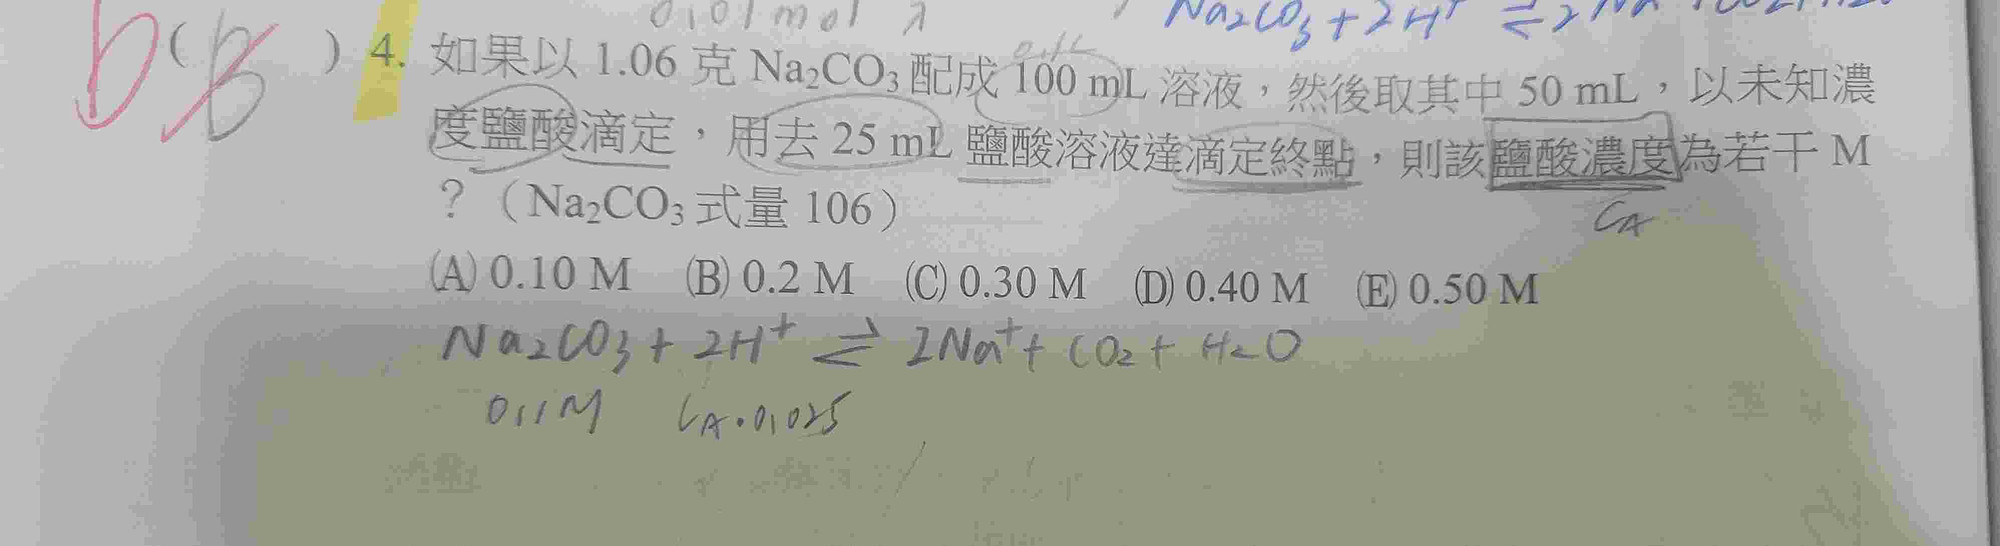 0.01 mol
Na₂CO₃ + 2H⁺ ⇌ 2Na
( B ) 4. 如果以 1.06 克 Na₂CO₃ 配成 100 mL 溶液，然後取其中 50 mL，以未知濃
度鹽酸滴定，用去 25 mL 鹽酸溶液達滴定終點，則該鹽酸濃度為若干 M
？（Na₂CO₃ 式量 106）
C_A
(A) 0.10 M (B) 0.2 M (C) 0.30 M (D) 0.40 M (E) 0.50 M
Na₂CO₃ + 2H⁺ ⇌ 2Na⁺ + CO₂ + H₂O
0.1M C_A·0.025